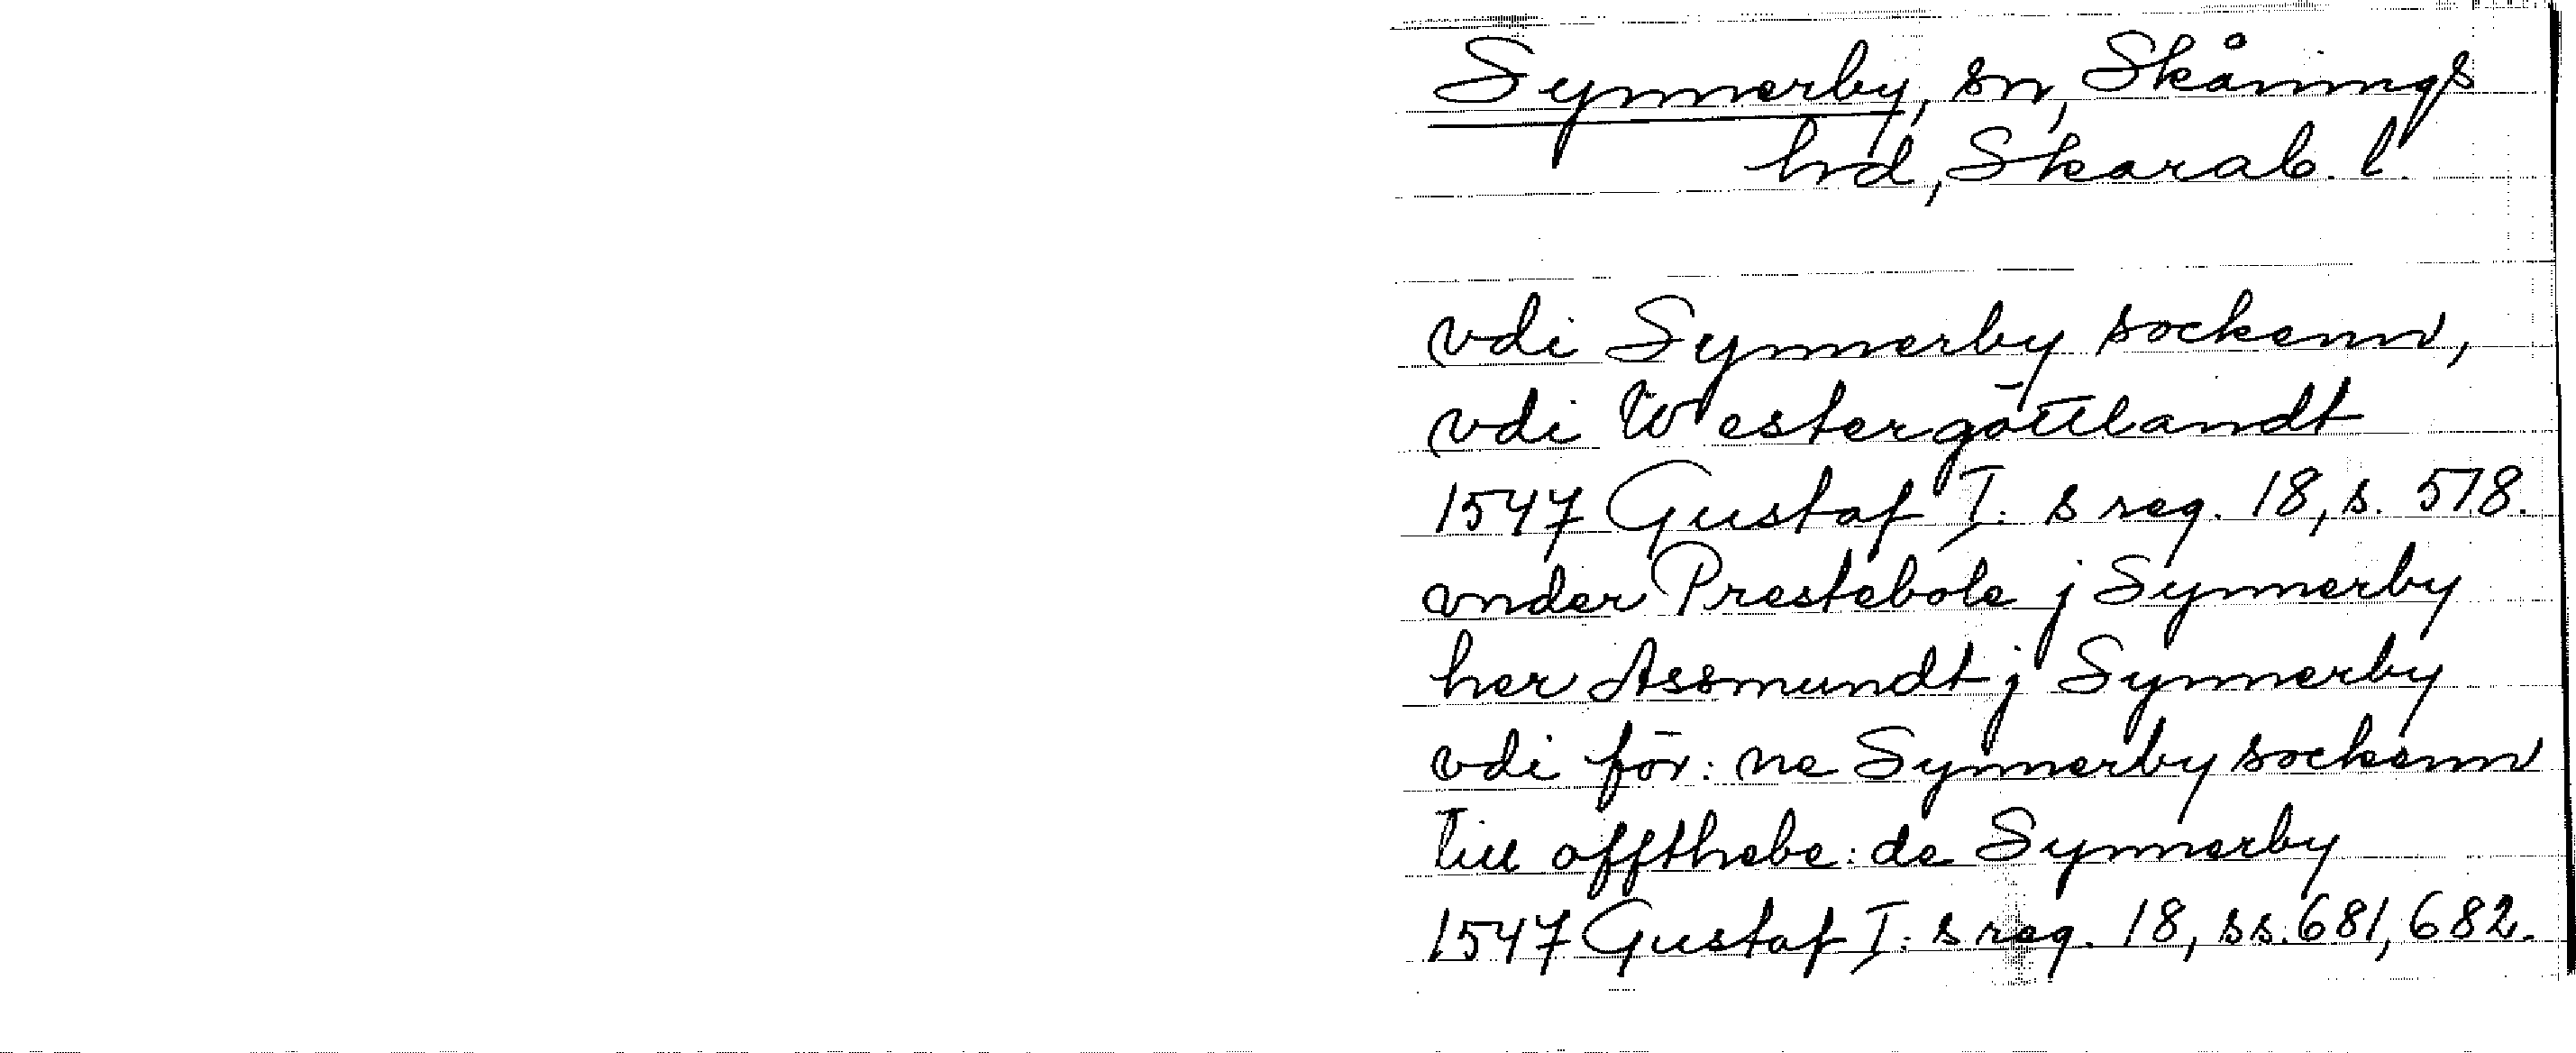 Synnerby, sn, Skånings
hd, Skarab. l.
vdi Synnerby sockenn,
vdi Westergöttlandt
1547 Gustaf I:s reg. 18, s. 578.
vnder Prestebole j Synnerby
her Assmundt j Synnerby
vdi för:ne Synnerby sockenn
till offthebe:de Synnerby
1547 Gustaf I:s reg. 18, ss. 681, 682.